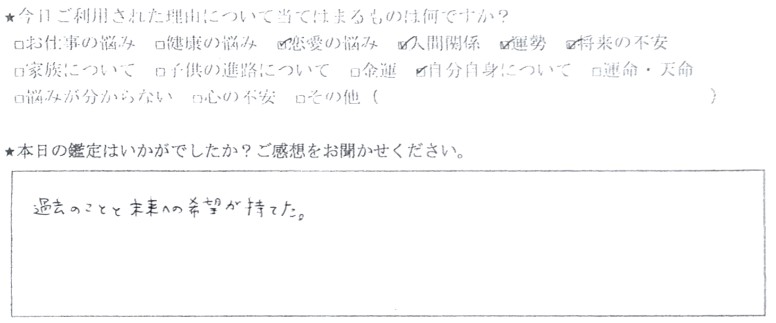 ★今日ご利用された理由について当てはまるものは何ですか？
□お仕事の悩み □健康の悩み ☑恋愛の悩み ☑人間関係 ☑運勢 ☑将来の不安
□家族について □子供の進路について □金運 ☑自分自身について □運命・天命
□悩みが分からない □心の不安 □その他（ ）
★本日の鑑定はいかがでしたか？ご感想をお聞かせください。
過去のことと未来への希望が持てた。